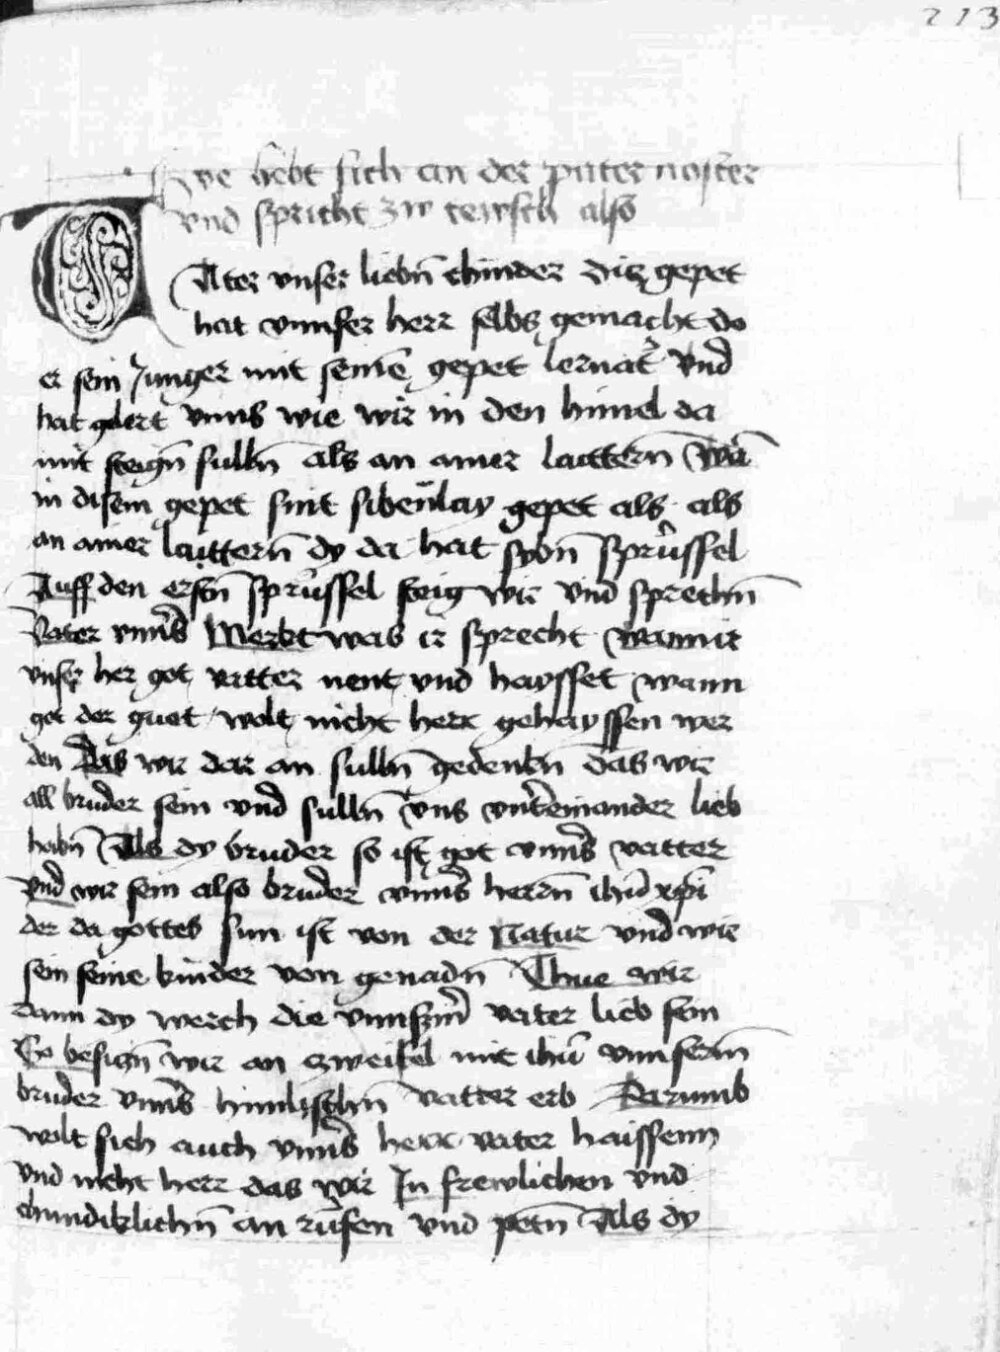 213
Hye hebt sich an der pater noster
vnd spricht zw tewsch also
Vater vnser liebn̄ chinder ditz gepet
hat vnnser herr selbs gemacht do
er sein Junger mit seinē gepet lernat Vnd
hat gelert vnns wie wir in den himel da
mit steign̄ sulln̄ als an ainer lattern̄ Wañ
in disem gepet sint sibenlay gepet als als
an ainer lattern̄ dy da hat sybn̄ sprüssel
Auff den erstn̄ sprüssel steig wir vnd sprechn̄
Vater vnnser Merkt was ir sprecht wann ir
vnser her got vatter nent vnd haysset wann
got der guet wolt nicht herr gehayssen wer
den Das wir dar an sulln̄ gedenkn̄ das wir
all bruder sein vnd sulln̄ vns vnt̄einander lieb
habn̄ Als dy bruder so ist got vnnser vatter
Vnd wir sein also bruder vnnsers herrn̄ ihū xp̄i
der da gottes sun ist von der Natur vnd wir
sein seine kinder von genadn̄ Thue wir
dann dy werch die vnnserm vater lieb sein
So besiczn̄ wir an zweifel mit ihū vnnserm̄
bruder vnnsers himlischn̄ vatter erb Darumb
wolt sich auch vnnser herr vater haissenn
vnd nicht herr das wir In frewlichen vnd
chindiklichn̄ an rüfen vnd petn̄ Als dy